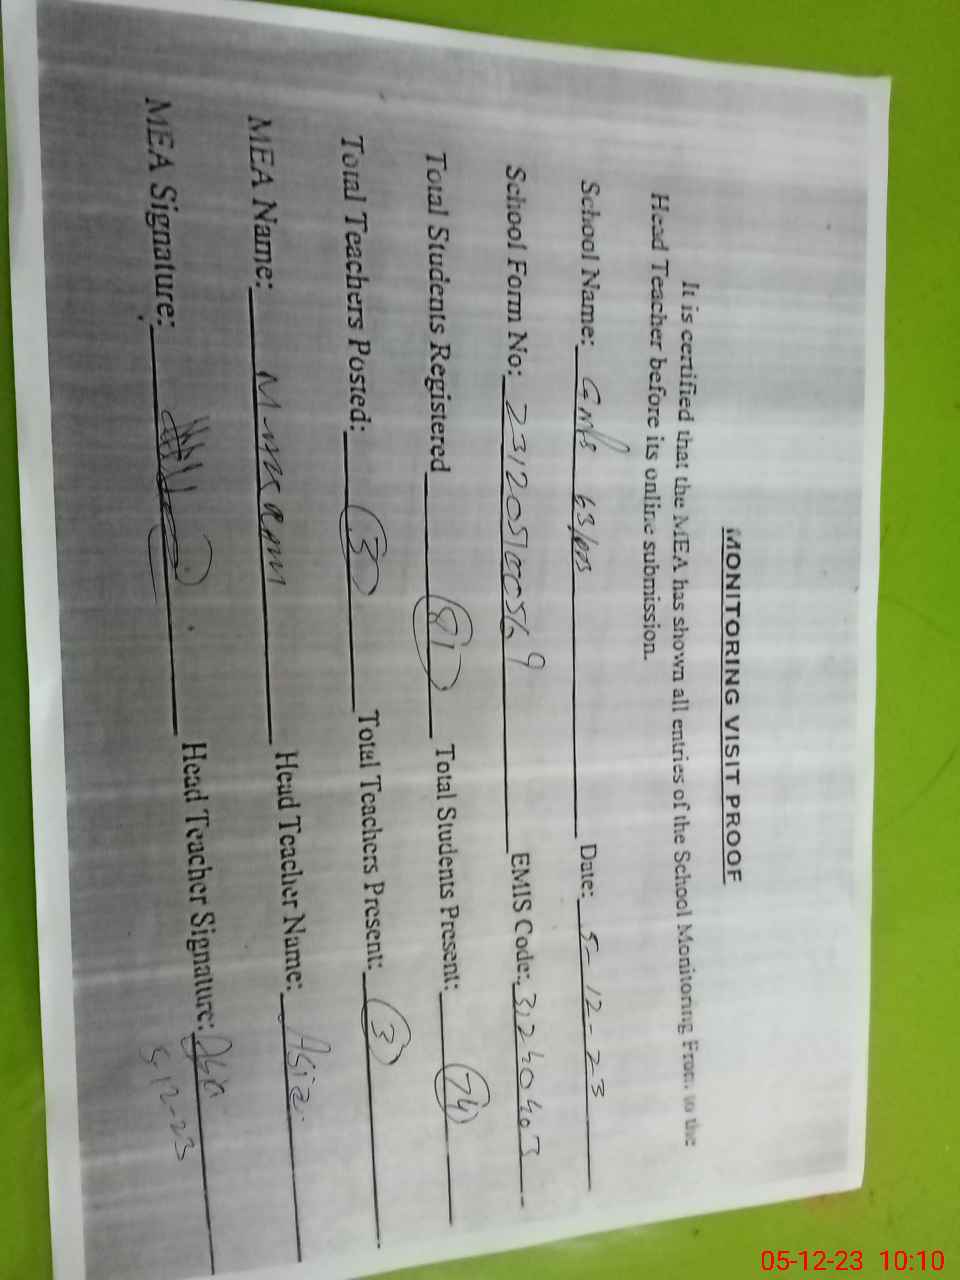 MONITORING VISIT PROOF
It is certified that the MEA has shown all entries of the School Monitoring From to the
Head Teacher before its online submission.
School Name: Gmps 63/ Date: 5-12-23
School Form No: 23120510056 9 EMIS Code:
Total Students Registered 81 Total Students Present: 74
Total Teachers Posted: 3 Total Teachers Present: 3
MEA Name: Head Teacher Name: Asia
MEA Signature: Head Teacher Signature:
5-12-23
05-12-23 10:10